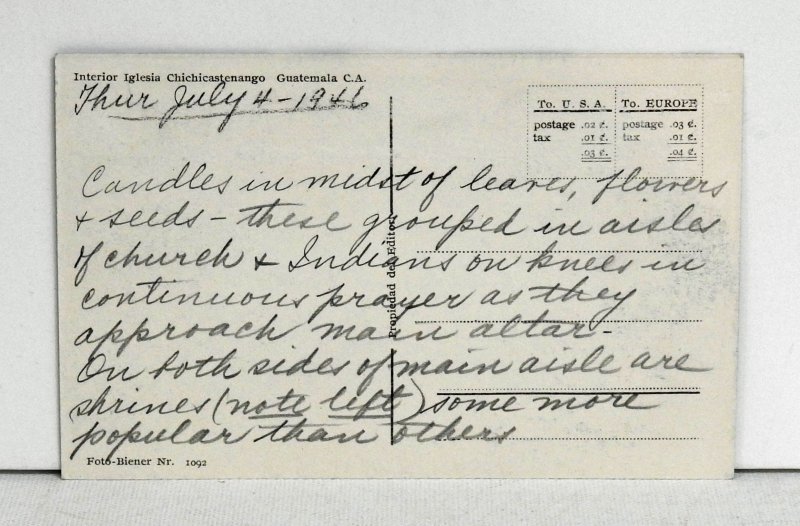 Interior Iglesia Chichicastenango Guatemala C.A.
Thur July 4-1946
To. U. S. A. To. EUROPE
postage .02 ¢. postage .03 ¢.
tax .01 ¢. tax .01 ¢.
.03 ¢. .04 ¢.
Candles in midst of leaves, flowers
& seeds - these grouped in aisles
of church & Indians on knees in
continuous prayer as they
approach main altar -
On both sides of main aisle are
shrines (note left) some more
popular than others
Propiedad del Editor
Foto-Biener Nr. 1092